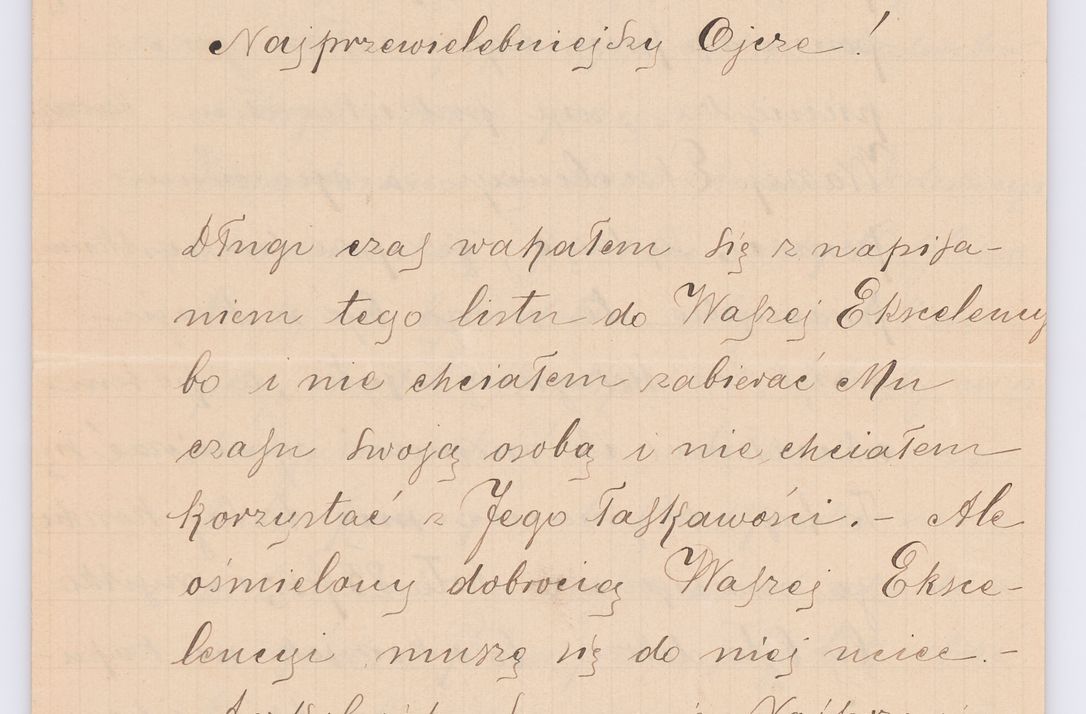 Najprzewielebniejszy Ojcze!
Długi czas wahałem się z napisa-
niem tego listu do Waszej Ekscelency
bo i nie chciałem zabierać Mu
czasu swoją osobą i nie chciałem
korzystać z Jego łaskawości. - Ale
ośmielony dobrocią Waszej Eksce-
lencyi muszę się do niej uciec. -